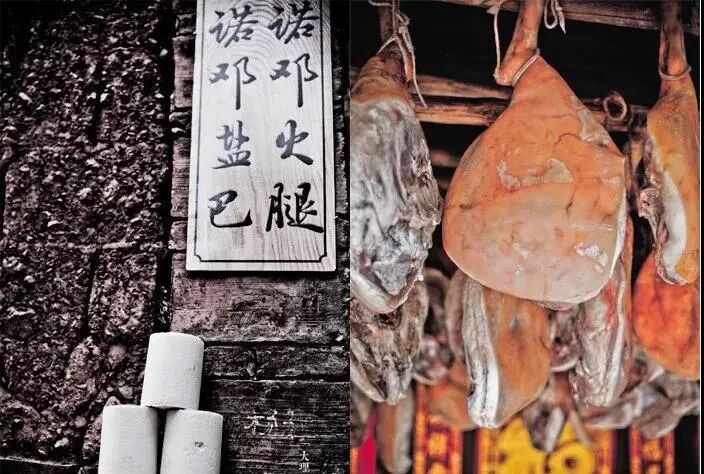 诺邓火腿
诺邓盐巴
大理